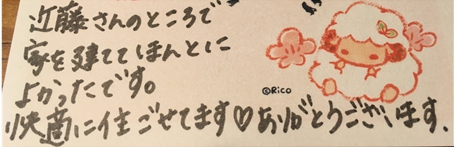 近藤さんのところで
家を建ててほんとに
よかったです。
快適に住ごせてます♡ありがとうございます.
©Rico